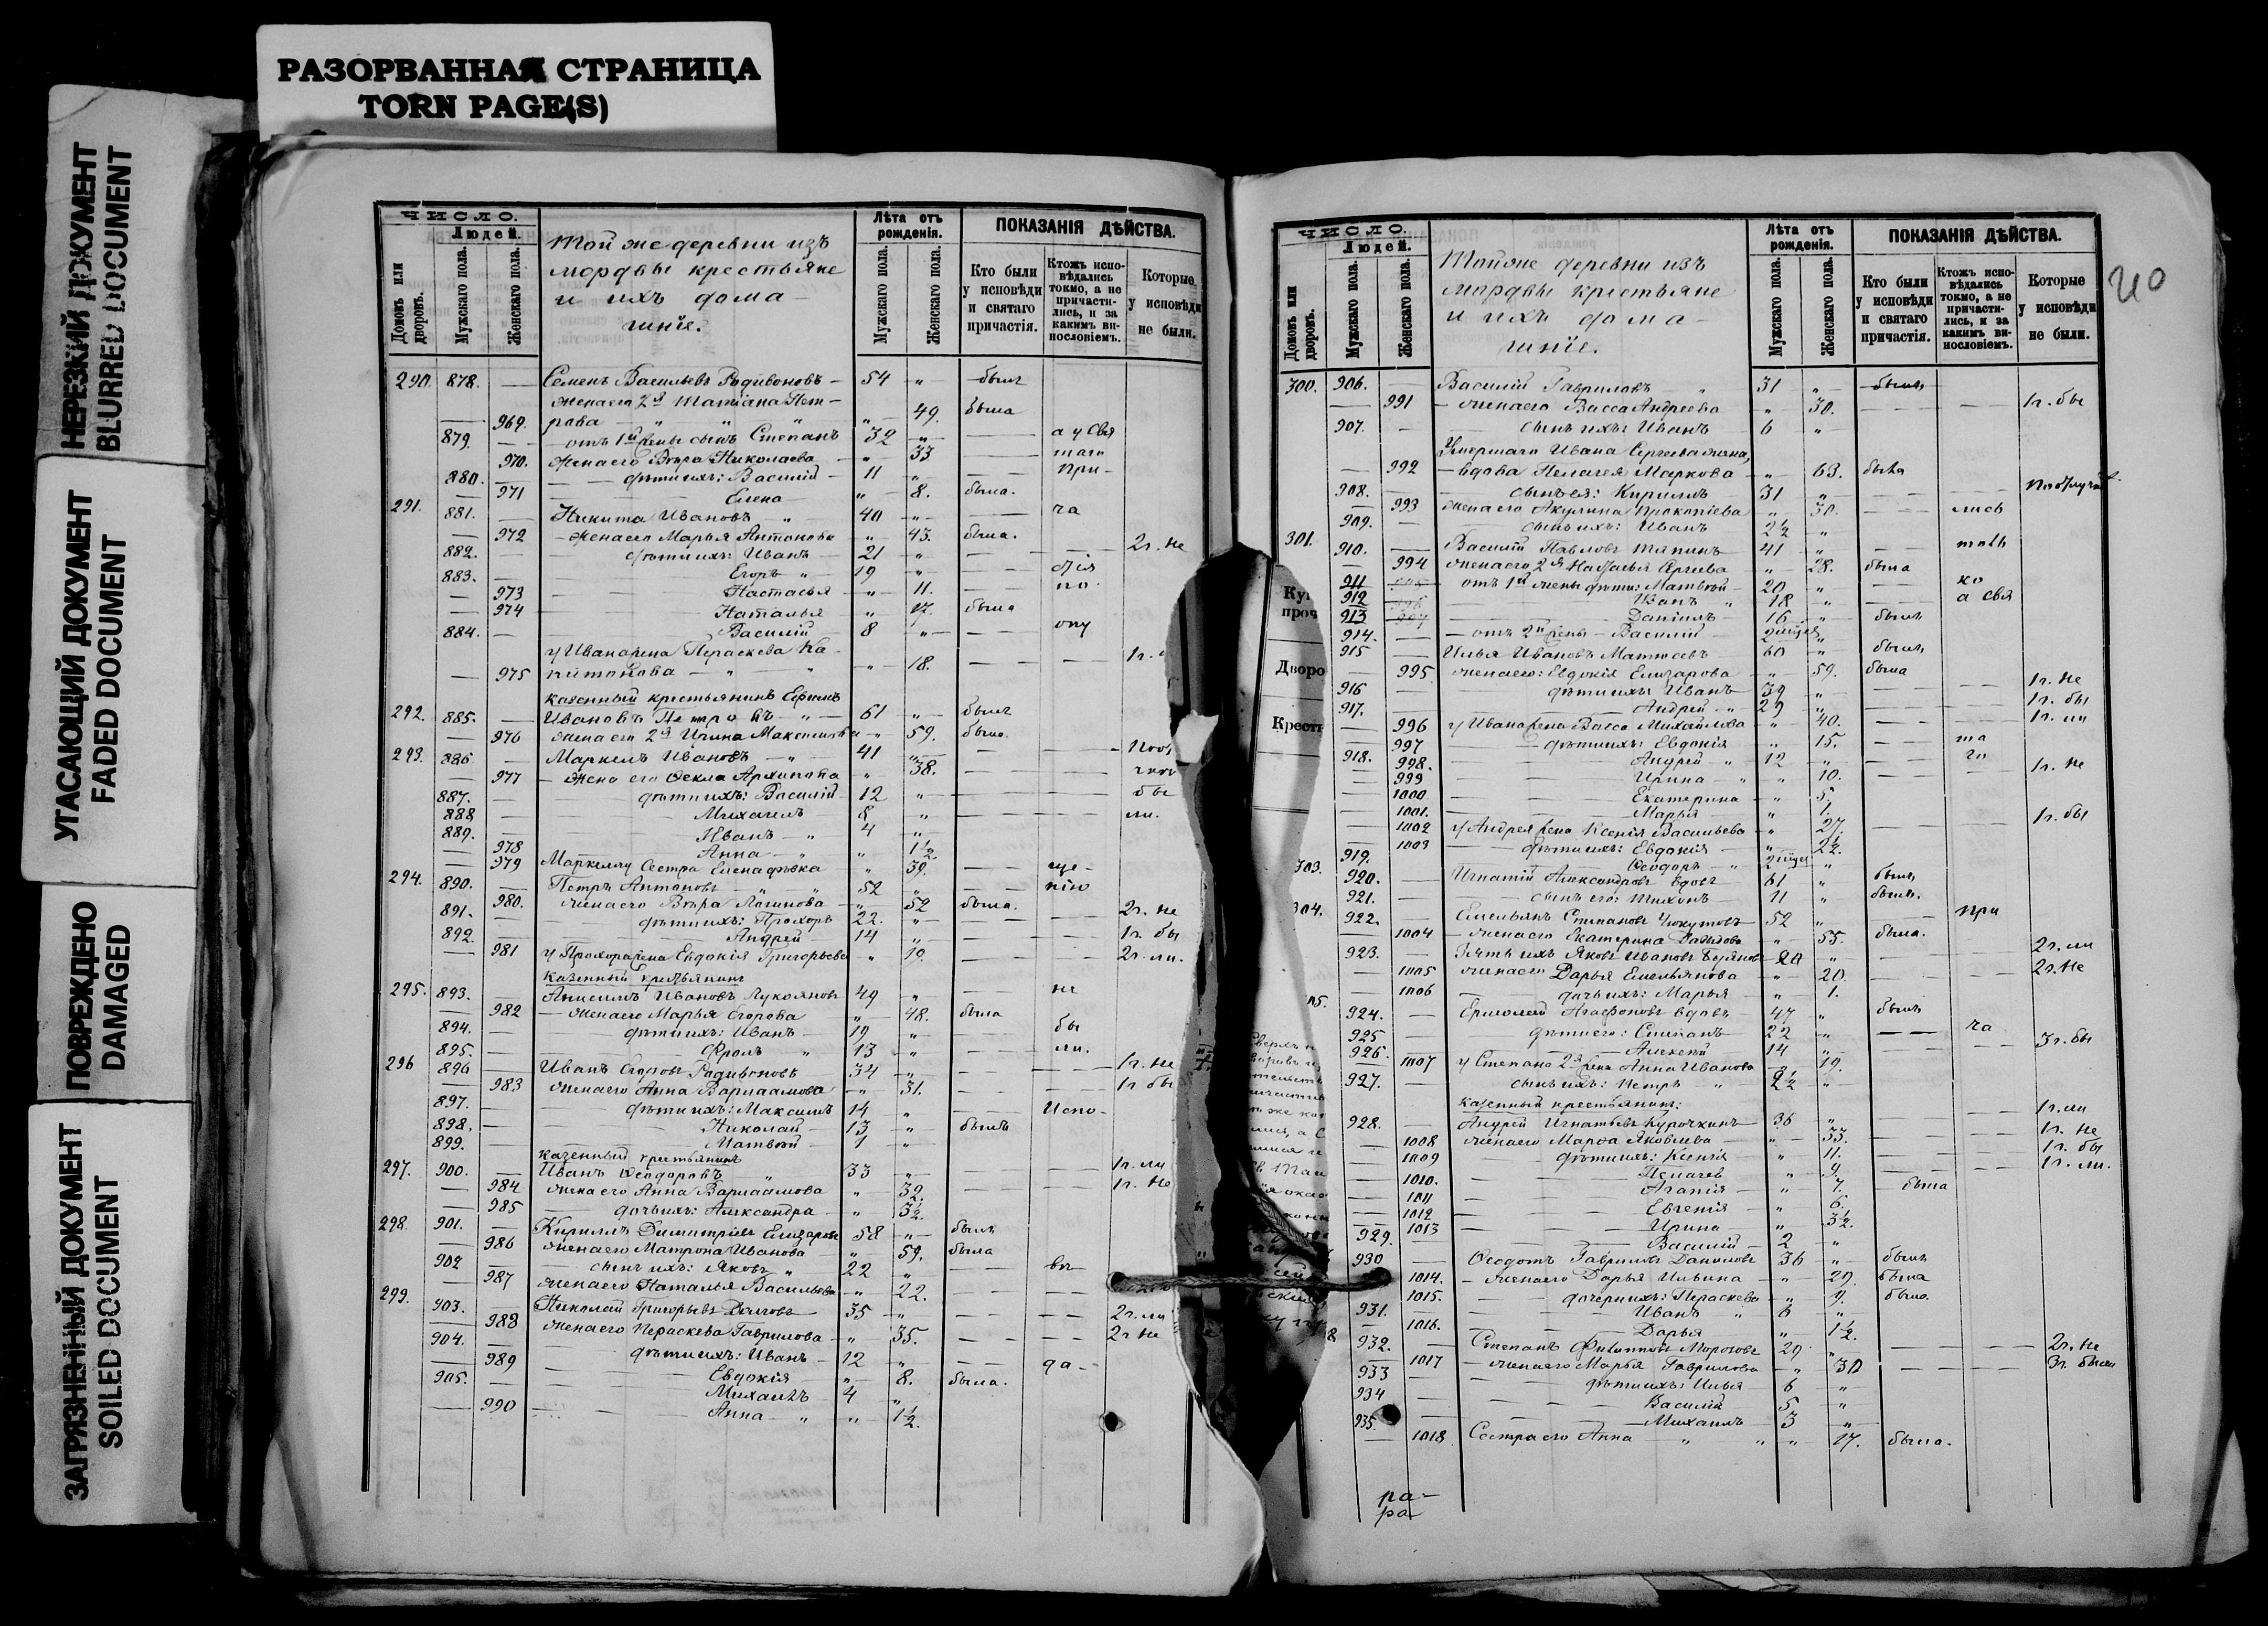 РАЗОРВАННАЯ СТРАНИЦА
TORN PAGE(S)
НЕРЕЗКИЙ ДОКУМЕНТ
BLURRED DOCUMENT
УГАСАЮЩИЙ ДОКУМЕНТ
FADED DOCUMENT
ПОВРЕЖДЕНО
DAMAGED
ЗАГРЯЗНЕННЫЙ ДОКУМЕНТ
SOILED DOCUMENT
ЧИСЛО.
Людей.
Домовъ или дворовъ.
Мужскаго пола.
Женскаго пола.
Той же деревни изъ
мордвы крестьяне
и ихъ дома-
шнiе.
Лѣта отъ рожденія.
Мужскаго пола.
Женскаго пола.
ПОКАЗАНІЯ ДѢЙСТВА.
Кто были у исповѣди и святаго причастія.
Ктожъ испо-вѣдались токмо, а не причасти-лись, и за какимъ ви-нословіемъ.
Которые у исповѣди не были.
290. 878. — Семенъ Васильевъ Родивоновъ — 54 „ былъ
жена его 2я Татiана Пет-
— 969. рова „ „ „ „ 49. была
879. — отъ 1й жены сынъ Степанъ 32 „ — а у Свя
— 970. жена его Вѣра Николаева „ 33 — таго
880. — дѣти ихъ: Василiй 11 „ — при-
— 971 Елена „ 8. была.
291. 881. — Никита Ивановъ „ 40 „ — ча
— 972 жена его Марья Антонова „ 43. была.
882. — дѣти ихъ: Иванъ 21 „ — — 2г. не
883. — Егоръ „ 19 „ — стiя
— 973 Настасья „ 11. — по
— 974 Наталья „ 17. была
884. — Василiй 8 „ — опу
у Ивана жена Параскева Ка-
— 975 питонова „ „ „ 18. — — 1г.
казенный крестьянинъ Ефимъ
292. 885. — Ивановъ Петровъ „ 61 „ былъ
— 976 жена его 2я Ирина Максимова „ 59. была.
293. 886 — Маркелъ Ивановъ „ 41 „ — —
— 977 жена его Ѳекла Архипова „ 38. — —
887. — дѣти ихъ: Василiй 12 „ — — бы
888 — Михаилъ 8 „ — — ли.
889. — Иванъ „ 4 „
— 978 Анна „ „ 1½
— 979 Маркеллу Сестра Елена дѣвка „ 39. — ще-
294. 890. — Петръ Антоновъ „ „ 52 „ — нiю
— 980. жена его Вѣра Логинова „ 52 была.
891. — дѣти ихъ: Прохоръ 22. „ — — 2г. не
892. — Андрей 14 „ — — 1г. бы
— 981 у Прохора жена Евдокiя Григорьева „ 19. — — 2г. ли.
казенный крестьянинъ
295. 893. — Анисимъ Ивановъ Лукояновъ 49 „ — не
— 982 жена его Марья Егорова „ 48. была
894. — дѣти ихъ: Иванъ 19 „ — бы
895. — Фролъ „ 13 „ — ли.
296 896 — Иванъ Егоровъ Родивоновъ 34 „ — — 1г. не
— 983 жена его Анна Варлаамова „ 31. — — 1г бы
897. — дѣти ихъ: Максимъ 14 „ — Испо-
898. — Николай 13 „ былъ
899. — Матвѣй 1 „
казенный крестьянинъ
297. 900. — Иванъ Ѳеодоровъ „ 33 „ — — 1г. ли
— 984 жена его Анна Варлаамова „ 32. — — 1г. не
— 985 дочь ихъ: Александра „ 3½
298. 901. — Кириллъ Димитрiевъ Елизаровъ 58 „ былъ
— 986 жена его Матрона Иванова „ 59. была
902 — сынъ ихъ: Яковъ „ 22 „ — вѣ-
— 987 жена его Наталья Васильева „ 22. —
299. 903. — Николай Григорьевъ 35 „ — — 2г. ли
— 988 жена его Параскева Гаврилова „ 35. — — 2г не
904. — дѣти ихъ: Иванъ 12 „ — да-
— 989 Евдокiя „ 8. была.
905. — Михаилъ 4 „
— 990 Анна „ „ 1½.
40
ЧИСЛО.
Людей.
Домовъ или дворовъ.
Мужскаго пола.
Женскаго пола.
Той же деревни изъ
мордвы крестьяне
и ихъ дома-
шнiе.
Лѣта отъ рожденія.
Мужскаго пола.
Женскаго пола.
ПОКАЗАНІЯ ДѢЙСТВА.
Кто были у исповѣди и святаго причастія.
Ктожъ испо-вѣдались токмо, а не причасти-лись, и за какимъ ви-нословіемъ.
Которые у исповѣди не были.
300. 906. — Василiй Гавриловъ „ 31 „ былъ
— 991 жена его Васса Андреева „ 30. — — 1г. бы
907. — сынъ ихъ Иванъ 6 „
Умершаго Ивана Сергеева жена,
— 992 вдова Пелагея Маркова „ 63. была
908. — сынъ ея: Кириллъ 31 „ — —
— 993 жена его Акулина Прокопiева „ 30. — лись
909. — сынъ ихъ: Иванъ 2½ „
301. 910. — Василiй Павловъ Тяпинъ 41 „ — толь
— 994 жена его 2я Наталья Сергеева „ 28. была
911 — отъ 1й жены дѣти: Матвѣй 20 „ — ко
912 — Иванъ „ 18 „ — а свя
913 — Данiилъ 16 „ былъ
914. — отъ 2й жены Василiй „
915 — Илья Ивановъ Матюевъ 60 „ былъ
— 995 жена его: Евдокiя Елизарова „ 59. была
916 — дѣти ихъ Иванъ 39 „ — — 1г. не
917. — Андрей „ 29 „ — — 1г. бы
— 996 у Ивана жена Васса Михайлова „ 40. — — 1г. ли
— 997 дѣти ихъ: Евдокiя „ 15. — та
918. 998. Андрей „ 12 „ — го
— 999 Ирина „ „ 10. — — 1г. не
— 1000 Екатерина „ 5,
— 1001. Марья „ 1.
— 1002 у Андрея жена Ксенiя Васильева „ 27. — — 1г. бы
— 1003 дѣти ихъ: Евдокiя „ 2½.
919. — Ѳеодоръ „ „
303. 920. — Игнатiй Александровъ вдовъ 61 „ былъ
921. — сынъ его: Тихонъ 11 „ былъ.
304. 922. — Емельянъ Степановъ 52 „ — при
— 1004 жена его Екатерина Давыдова „ 55. была.
923. — Зять ихъ Яковъ Ивановъ 20 „ — — 2г. ли
— 1005 жена его Дарья Емельянова „ 20. — — 2г. не
— 1006 дочь ихъ: Марья „ 1.
305. 924. — Ермолай Агафоновъ вдовъ 47 „ былъ
925 — дѣти его: Степанъ 22 „ — ча
926. — Алексѣй 14 „ — — 3г. бы
— 1007 у Степана 2я жена Анна Иванова „ 19.
927. — сынъ ихъ: Петръ „ 2½ „
казенный крестьянинъ:
928. — Андрей Игнатьевъ Курочкинъ 36 „ — — 1г. ли
— 1008 жена его Марѳа Яковлева „ 33. — — 1г. не
— 1009 дѣти ихъ: Ксенiя „ 11. — — 1г. бы
— 1010. Пелагея „ 9. — — 1г. ли.
— 1011 Агапiя „ 7. была
— 1012 Евгенiя „ 6.
— 1013 Ирина „ 3½.
929. — Василiй 2 „
930 — Ѳеодотъ Гавриловъ Даниловъ 36 „ былъ
— 1014. жена его Дарья Ильина „ 29. была
— 1015. дочери ихъ: Параскева „ 9. была.
931. — Иванъ „ 6 „
— 1016. Дарья „ 1½.
932. — Степанъ Филипповъ Морозовъ 29 „ — — 2г. не
— 1017 жена его Марья Гаврилова „ 30 — — 3г. были
933 — дѣти ихъ: Илья 6 „
934 — Василiй 5 „
935. — Михаилъ 3 „
— 1018 Сестра его Анна „ „ „ 17. была.
ра-
ра
Дворо
Крестъ